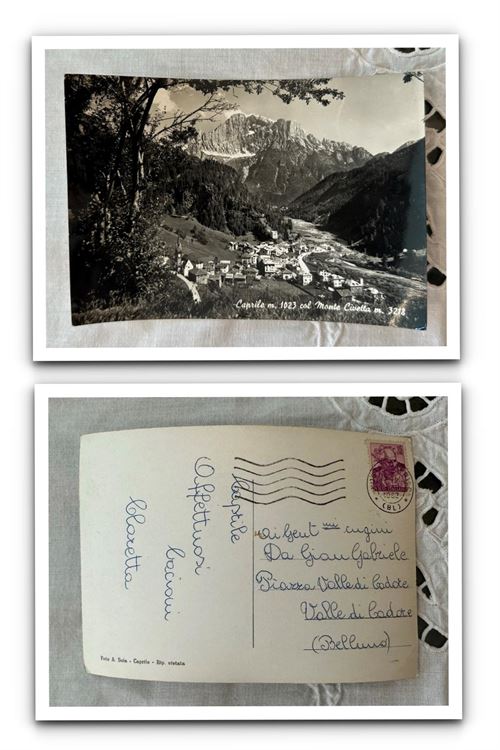 Caprile m. 1023 col Monte Civetta m. 3218
Caprile
Affettuosi
bacioni
Claretta
(BL)
ai Gent mi cugini
Da Gian Gabriele
Piazza Valle di Cadore
Valle di Cadore
(Belluno)
Foto A. Soia - Caprile - Rip. vietata